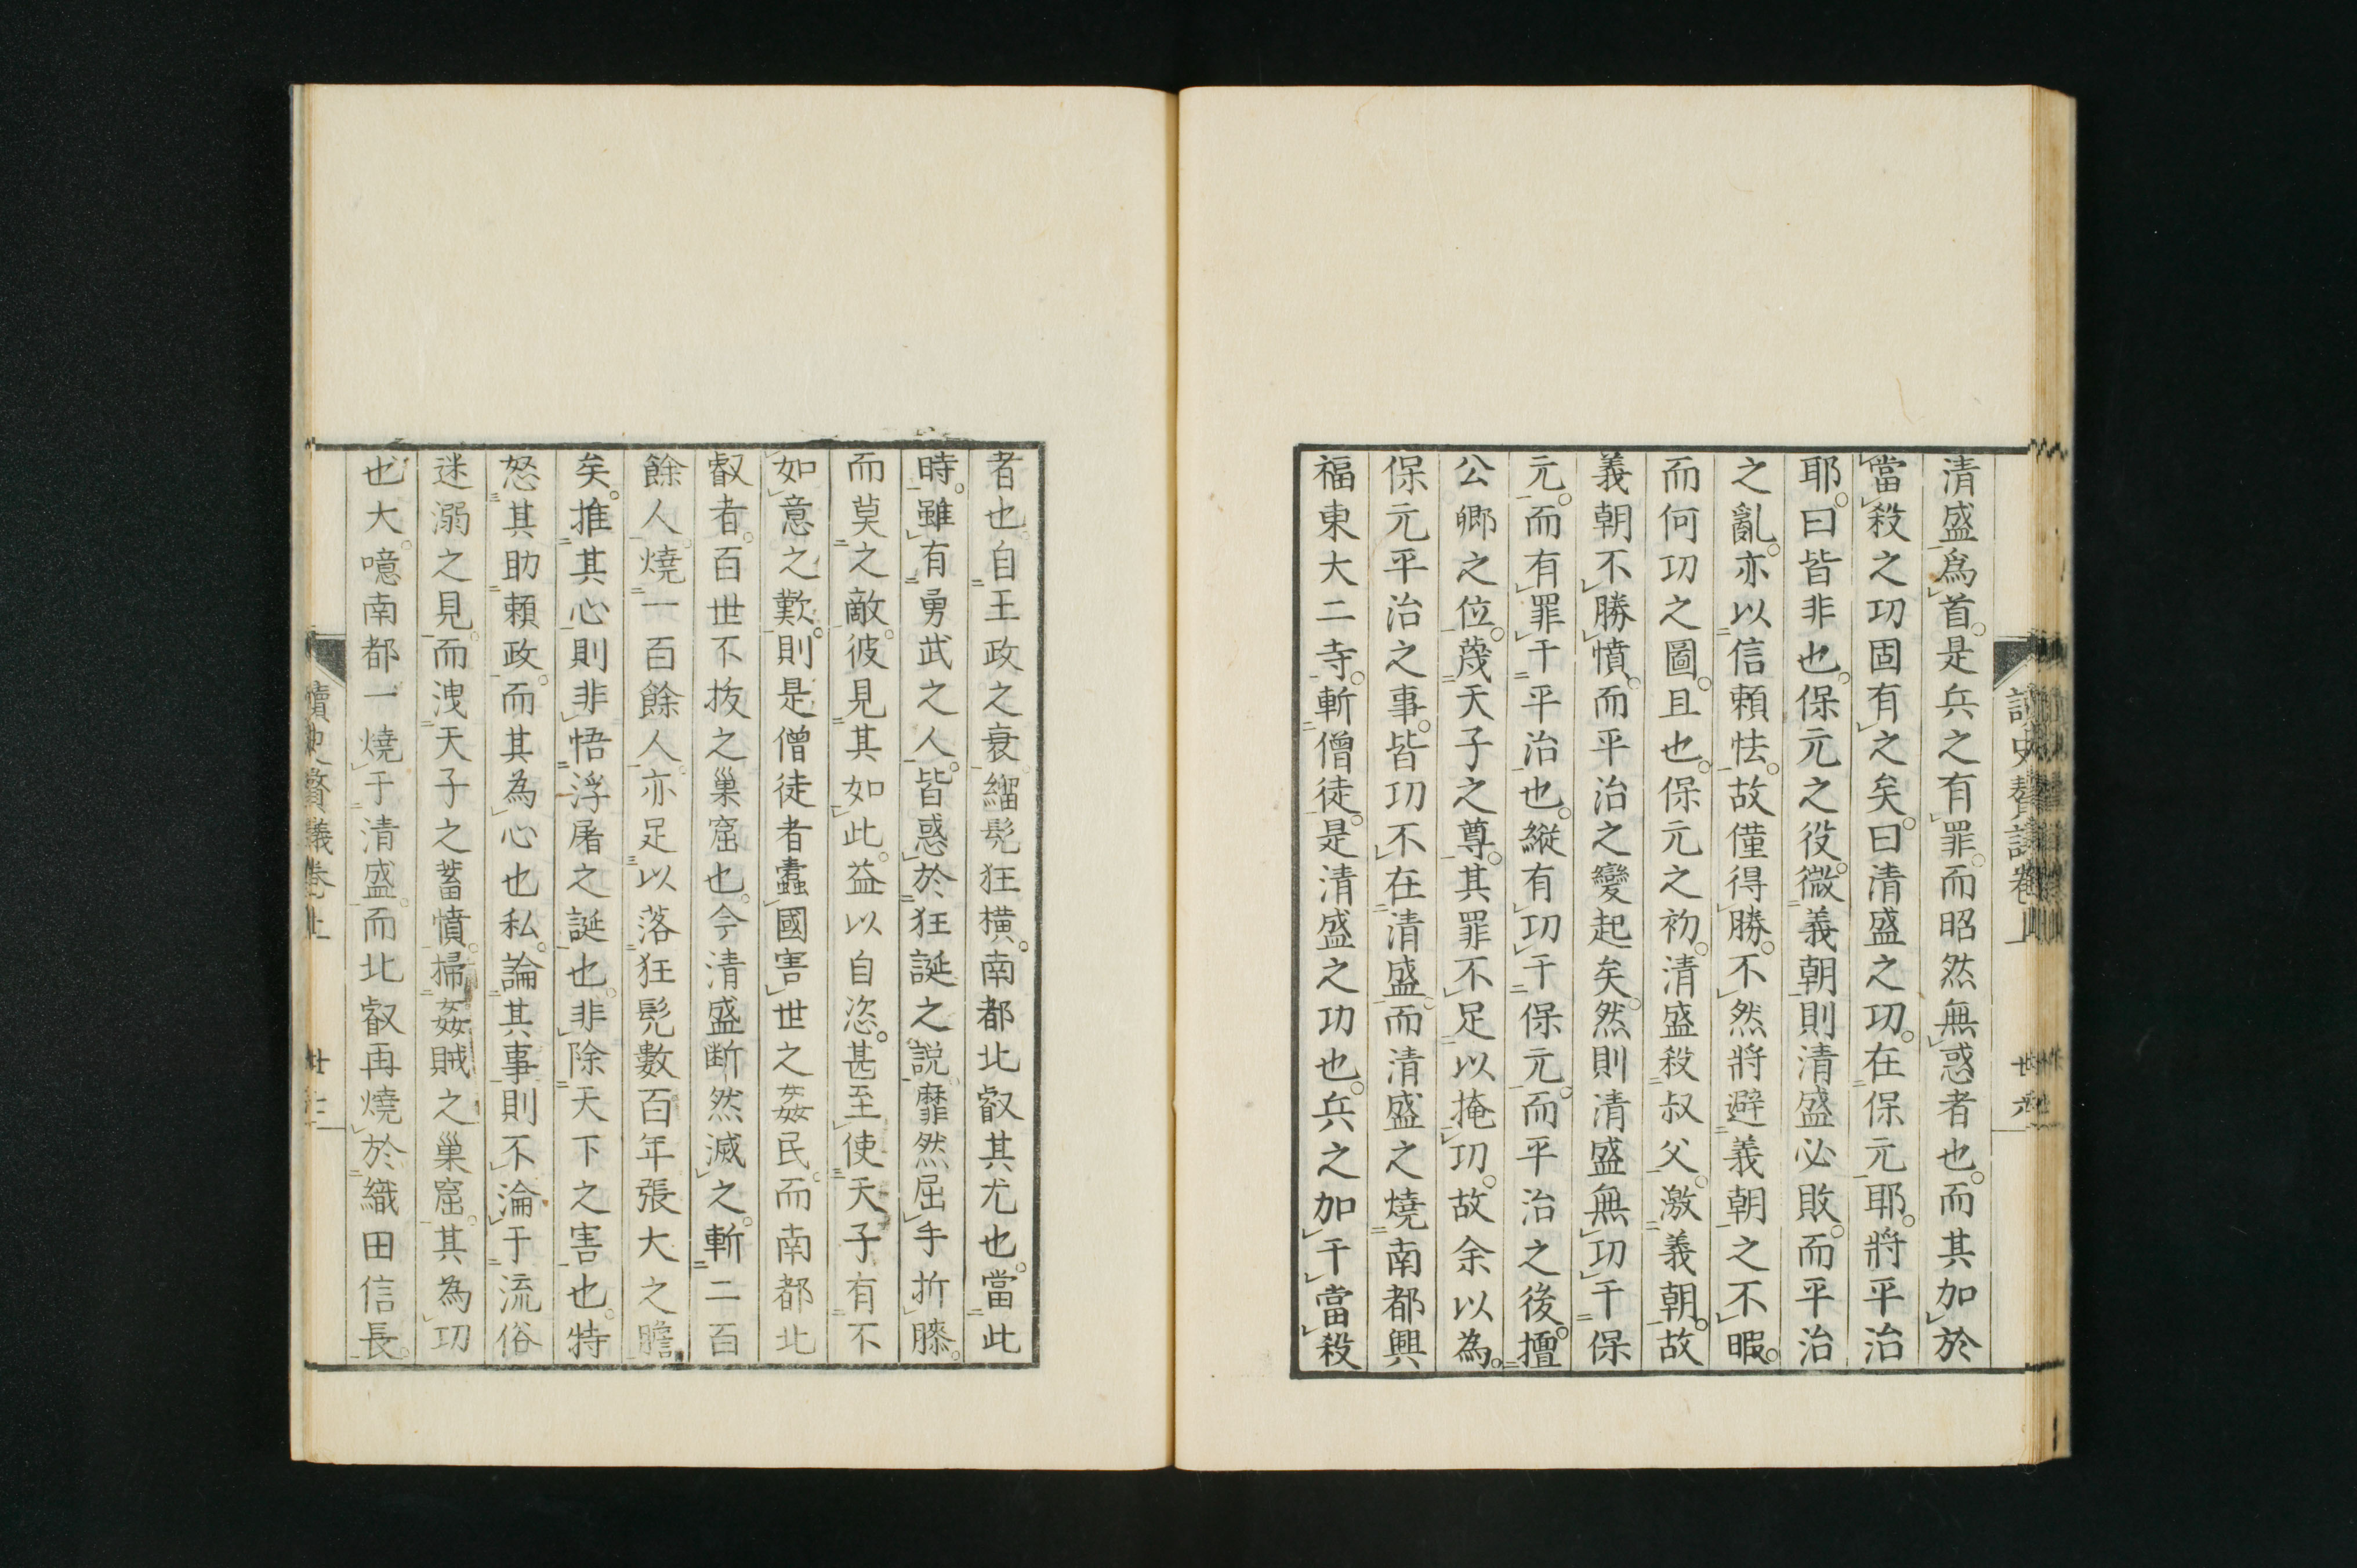 清盛爲首。是兵之有罪。而昭然無惑者也。而其加於
當殺之功固有之矣。曰清盛之功。在保元耶。將平治
耶。曰皆非也。保元之役。微義朝則清盛必敗。而平治
之亂。亦以信頼怯。故僅得勝。不然將避義朝之不暇。
而何功之圖。且也。保元之初。清盛殺叔父。激義朝。故
義朝不勝憤。而平治之變起矣。然則清盛無功于保
元。而有罪于平治也。縱有功于保元。而平治之後。擅
公卿之位。蔑天子之尊。其罪不足以掩功。故余以為。
保元平治之事。皆功不在清盛。而清盛之燒南都興
福東大二寺。斬僧徒。是清盛之功也。兵之加于當殺
者也。自王政之衰。緇髡狂橫。南都北叡其尤也。當此
時。雖有勇武之人。皆惑於狂誕之説。靡然屈手折膝。
而莫之敵。彼見其如此。益以自恣。甚至使天子有不
如意之歎。則是僧徒者蠹國害世之姦民。而南都北
叡者。百世不抜之巢窟也。今清盛断然滅之。斬二百
餘人。燒一百餘人。亦足以落狂髡數百年張大之膽
矣。推其心則非悟浮屠之誕也。非除天下之害也。特
怒其助頼政。而其為心也私。論其事則不淪于流俗
迷溺之見。而洩天子之蓄憤。掃姦賊之巢窟。其為功
也大。噫南都一燒于清盛。而北叡再燒於織田信長。
讀史贅議卷上